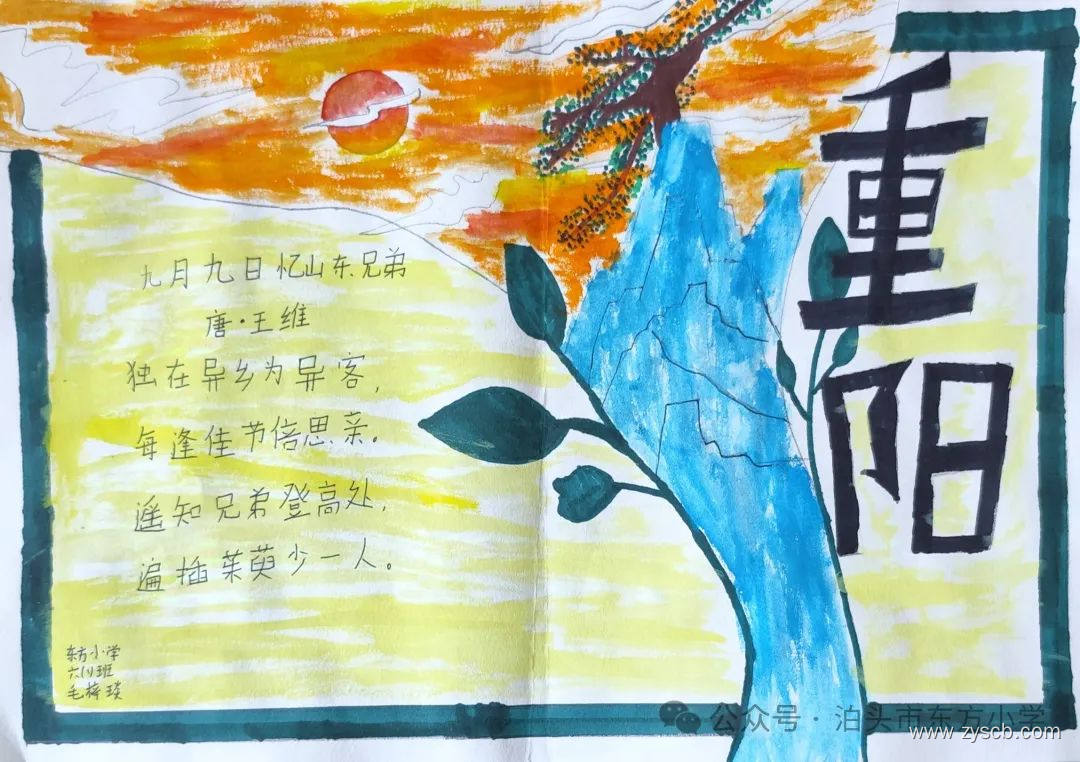 重阳
九月九日忆山东兄弟
唐·王维
独在异乡为异客，
每逢佳节倍思亲。
遥知兄弟登高处，
遍插茱萸少一人。
东方小学
六(1)班
毛梓琰
公众号·泊头市东方小学
www.zyscb.com